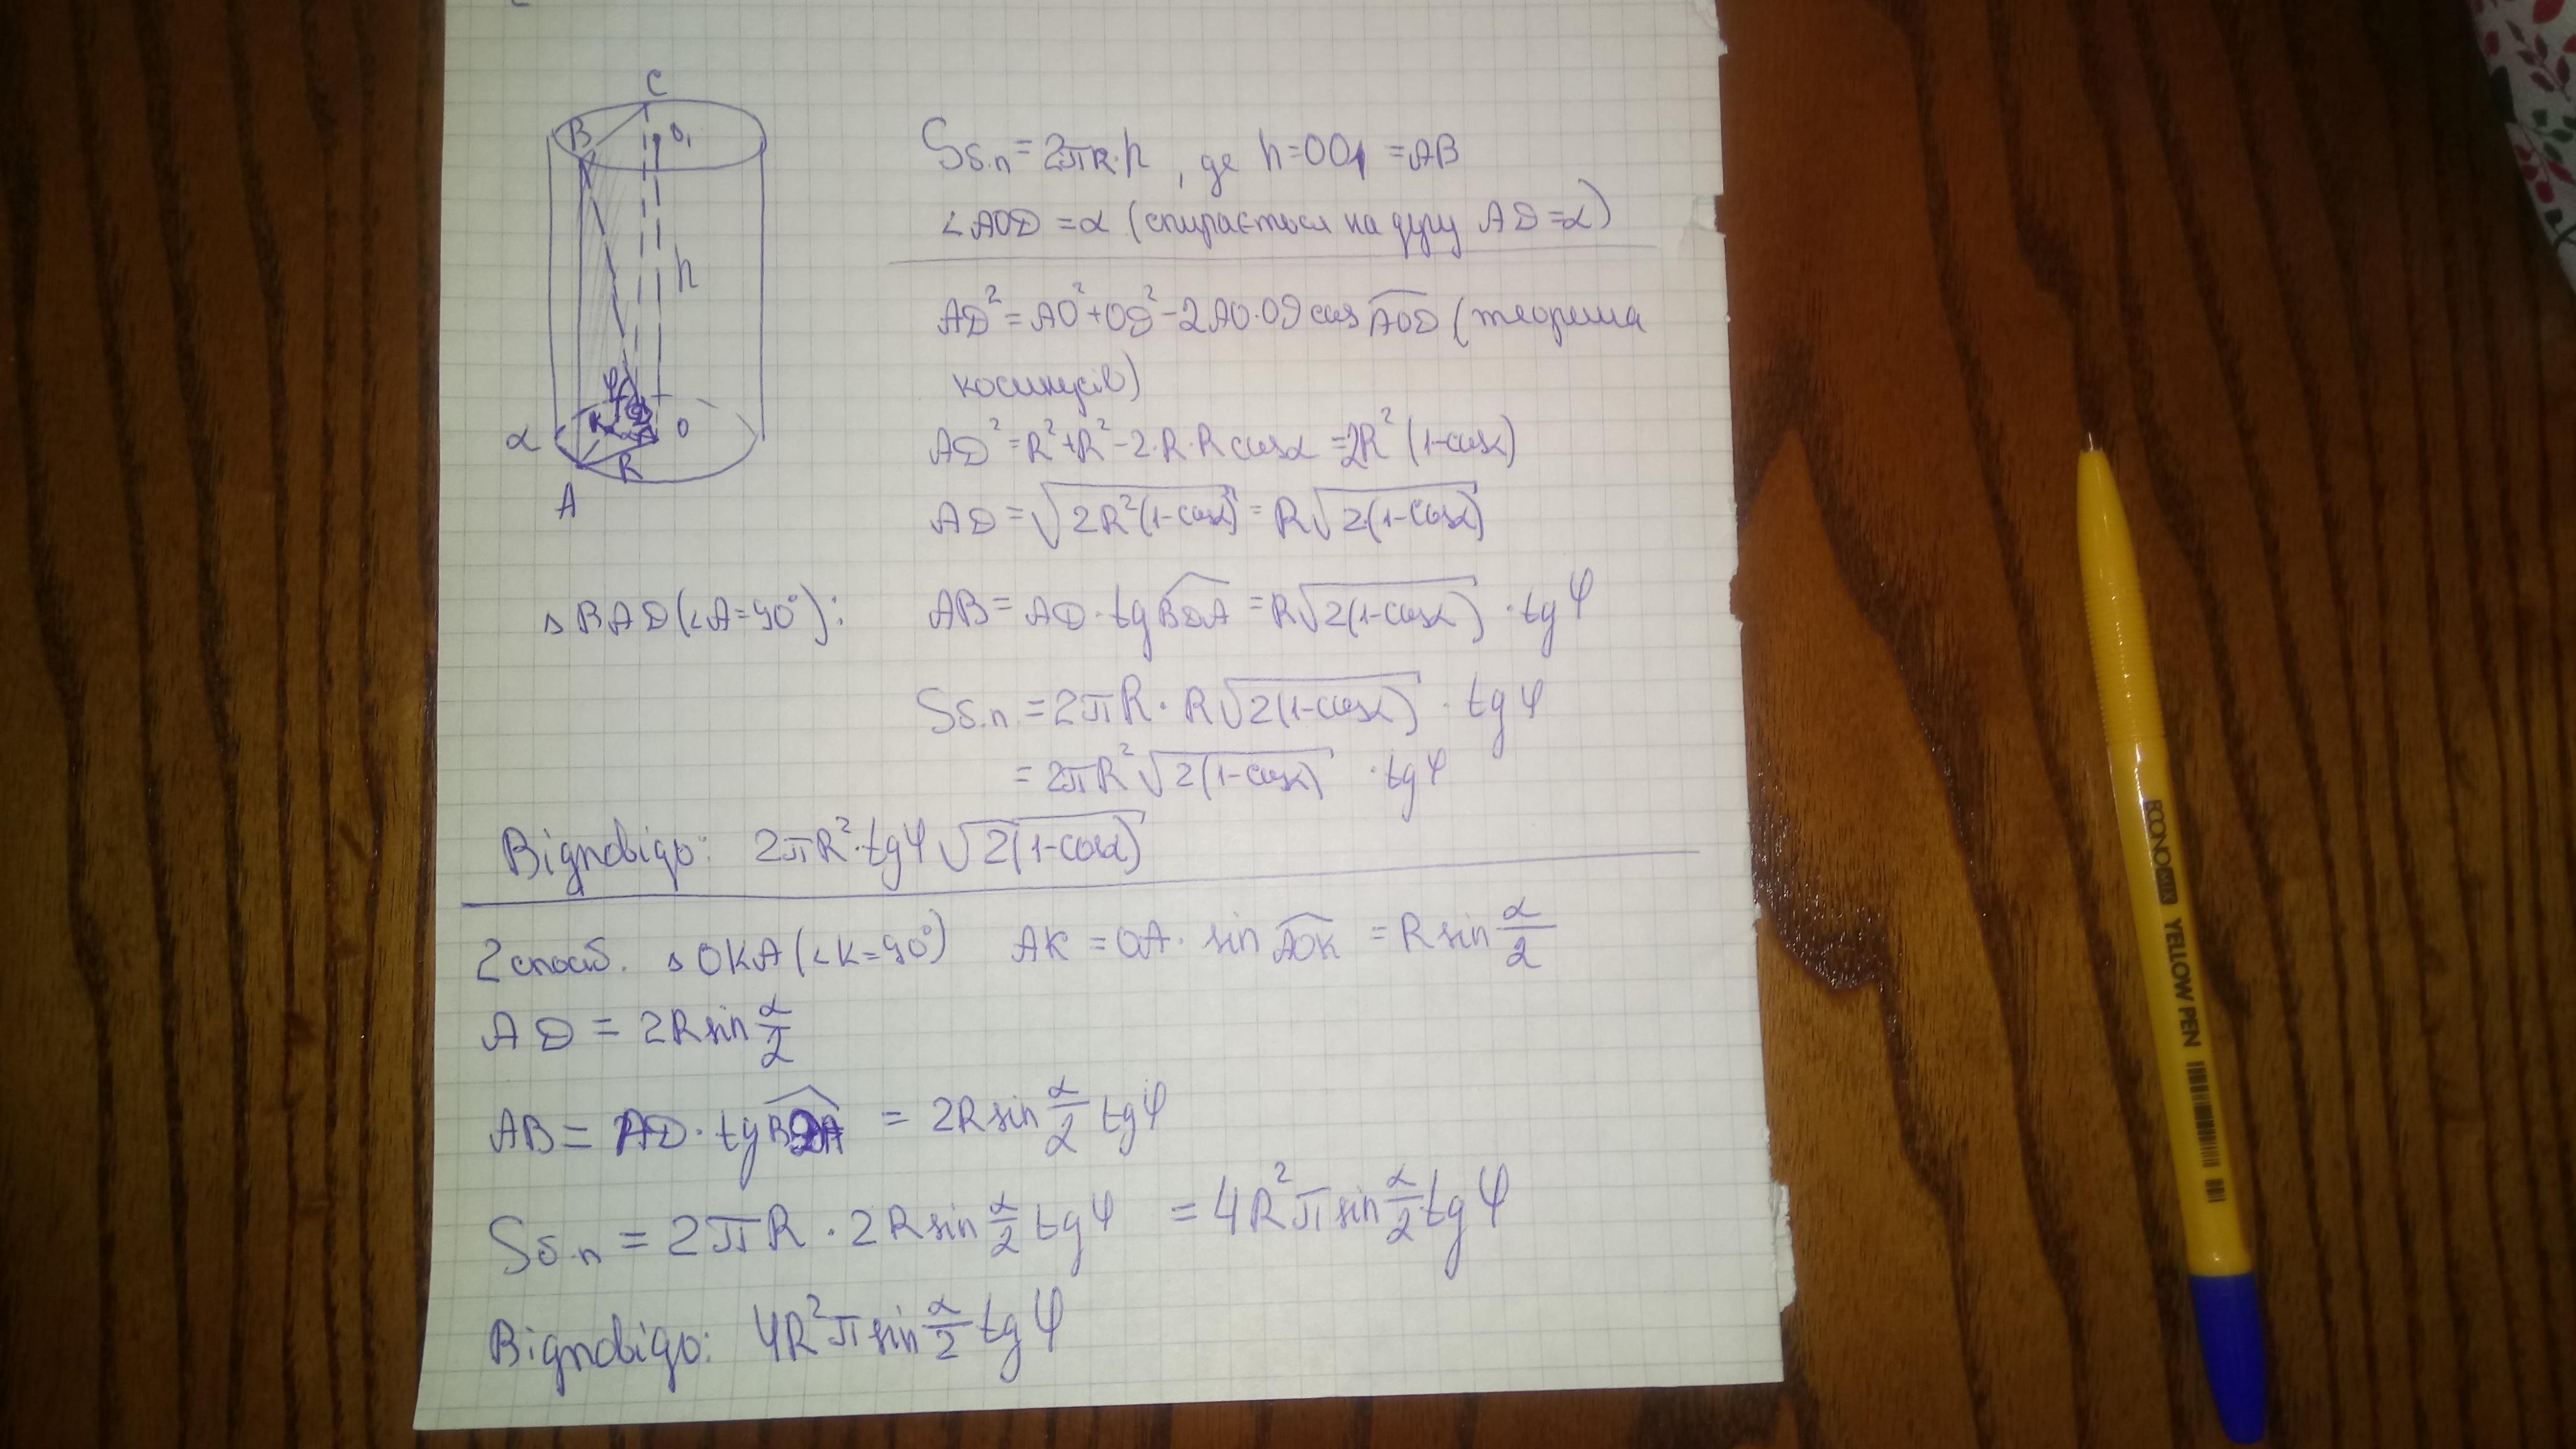 C
B
O₁
h
φ
K
D
O
α
R
A
Sб.п = 2πR·h , де h=OO₁ =AB
∠AOD =α (спирається на дугу AD =α)
AD² = AO²+OD²-2AO·OD cos AOD (теорема
косинусів)
AD² = R²+R²-2·R·R cosα =2R² (1-cosα)
AD = √2R²(1-cosα) = R√2(1-cosα)
△BAD (∠A=90°): AB = AD · tg BDA = R√2(1-cosα) · tg φ
Sб.п. = 2πR · R√2(1-cosα) · tg φ
= 2πR² √2(1-cosα) · tg φ
Відповідь: 2πR²·tgφ √2(1-cosα)
2 спосіб. △OKA (∠K=90°) AK = OA · sin AOK = R sin α/2
AD = 2R sin α/2
AB = AD · tg BDA = 2R sin α/2 tg φ
Sб.п = 2πR · 2R sin α/2 tg φ = 4R²π sin α/2 tg φ
Відповідь: 4R²π sin α/2 tg φ
ECONOMIX YELLOW PEN